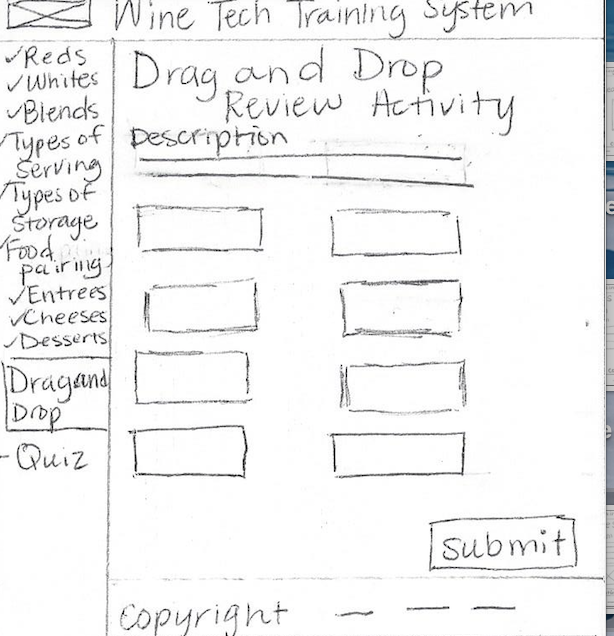 Wine Tech Training System
✓Reds
✓Whites
✓Blends
✓Types of
Serving
✓Types of
Storage
✓Food
pairing
✓Entrees
✓Cheeses
✓Desserts
Drag and
Drop
- Quiz
Drag and Drop
Review Activity
Description
Submit
Copyright